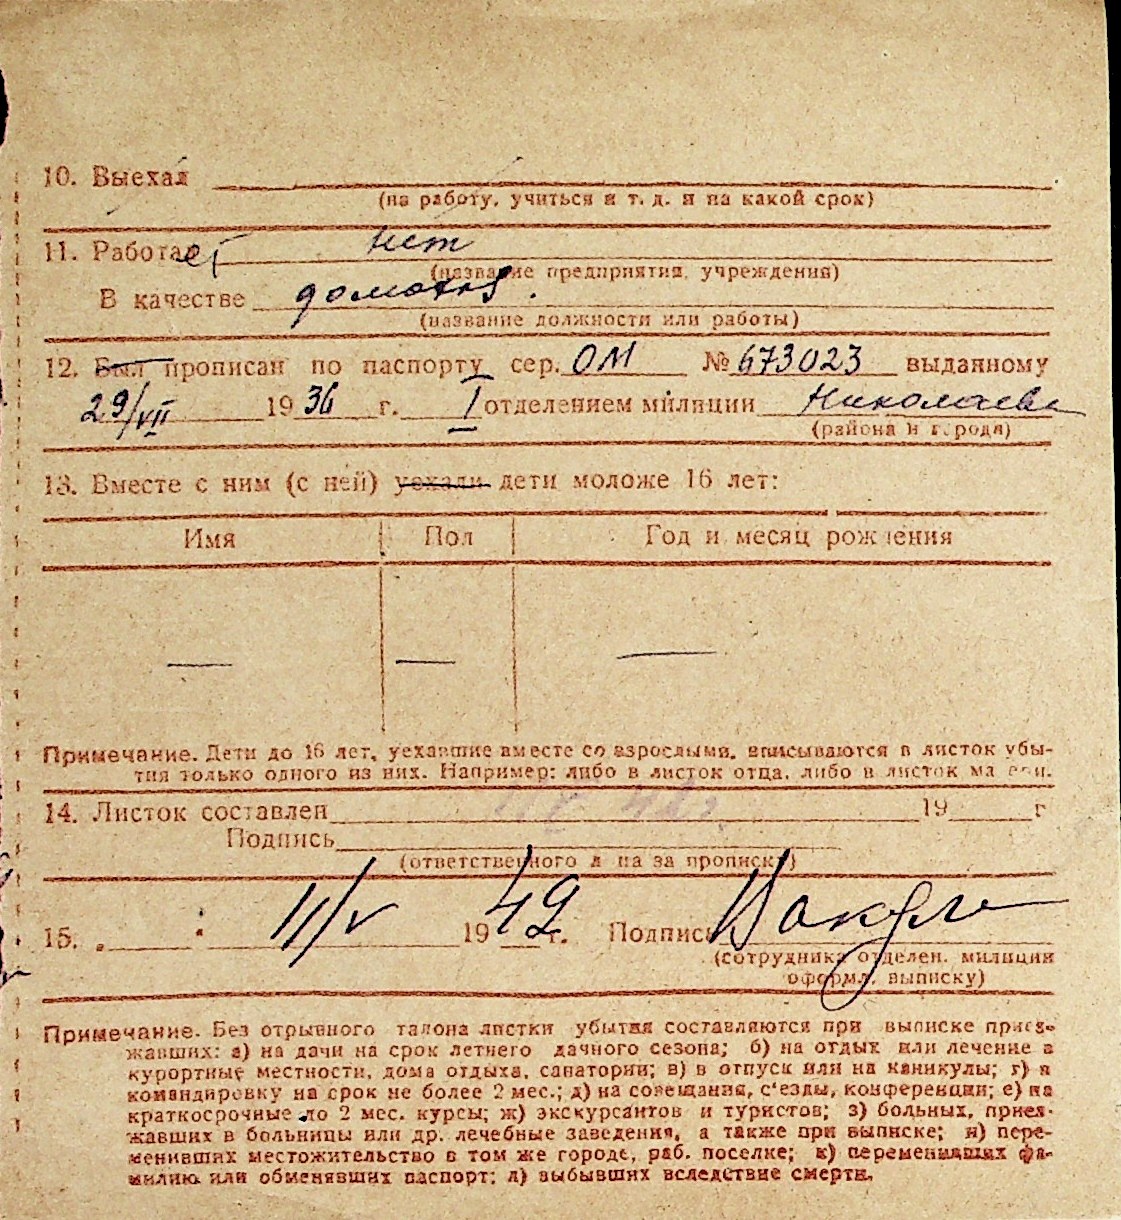 10. Выехал
(на работу, учиться и т. д. и на какой срок)
11. Работает нет
(название предприятия, учреждения)
В качестве домохоз.
(название должности или работы)
12. Был прописан по паспорту сер. ОМ № 673023 выданному
29/VII 1936 г. I отделением милиции Николаева
(района и города)
13. Вместе с ним (с ней) уехали дети моложе 16 лет:
Имя Пол Год и месяц рождения
— — —
Примечание. Дети до 16 лет, уехавшие вместе со взрослыми, вписываются в листок убы-
тия только одного из них. Например: либо в листок отца, либо в листок матери.
14. Листок составлен 19 г
Подпись
(ответственного лица за прописку)
15. 11/V 1942 г. Подпись
(сотрудника отделен. милиции
оформл. выписку)
Примечание. Без отрывного талона листки убытия составляются при выписке приез-
жавших: а) на дачи на срок летнего дачного сезона; б) на отдых или лечение в
курортные местности, дома отдыха, санатории; в) в отпуск или на каникулы; г) в
командировку на срок не более 2 мес.; д) на совещания, с'езды, конференции; е) на
краткосрочные до 2 мес. курсы; ж) экскурсантов и туристов; з) больных, приез-
жавших в больницы или др. лечебные заведения, а также при выписке; и) пере-
менивших местожительство в том же городе, раб. поселке; к) переменивших фа-
милию или обменявших паспорт; л) выбывших вследствие смерти.